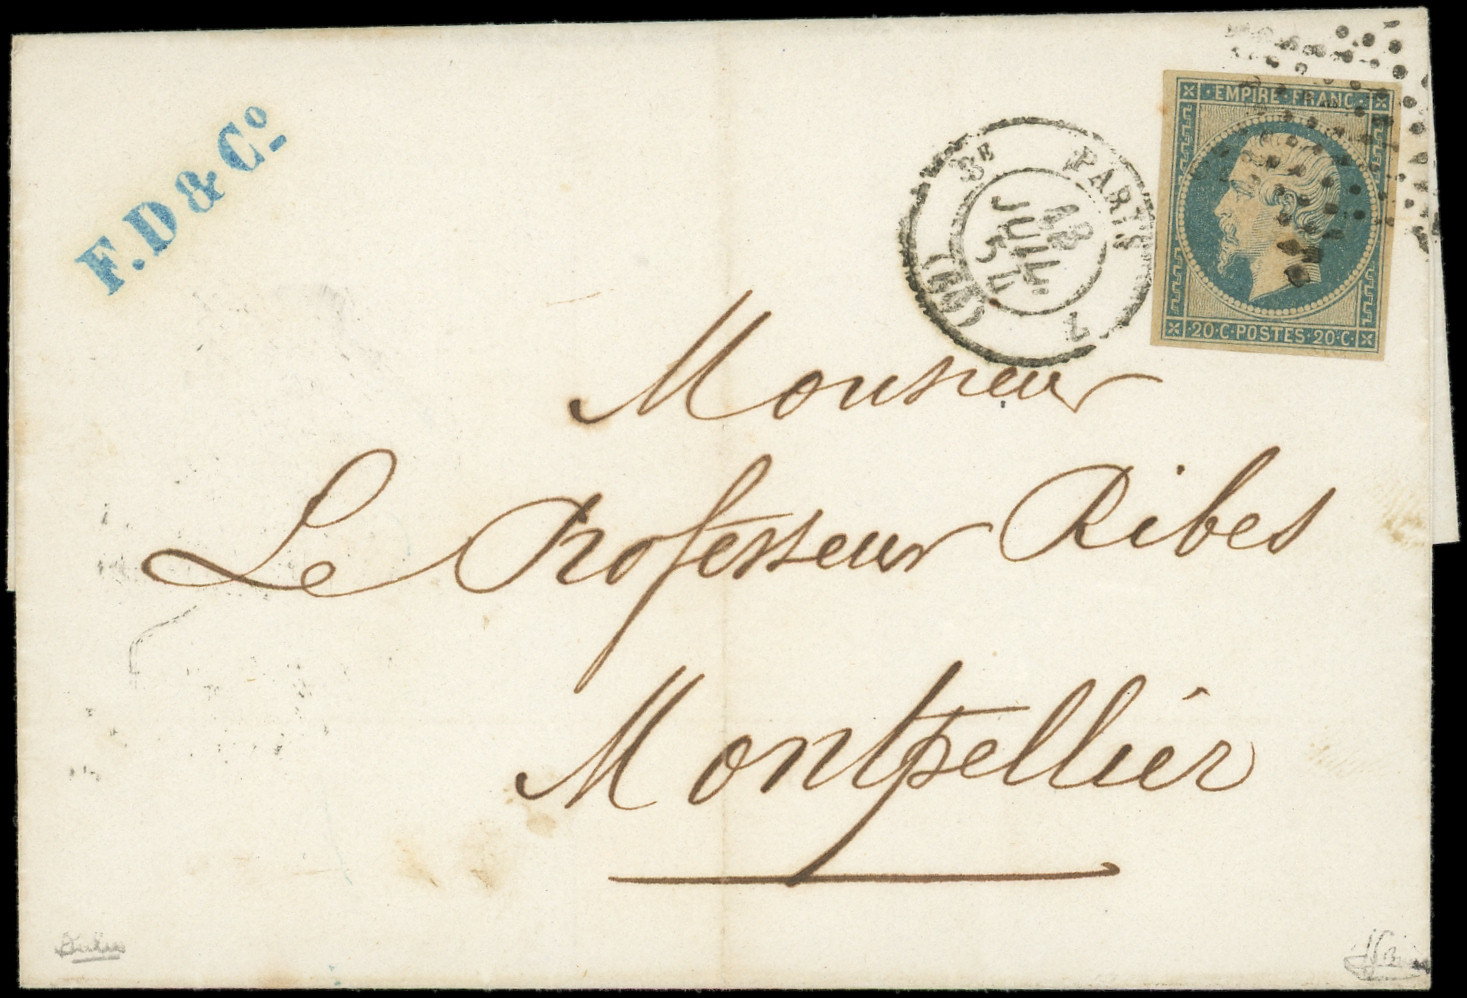 F. D & Cº
EMPIRE · FRANC ·
· 20 · C · POSTES · 20 · C ·
PARIS
3E
JUIL.
54
(60)
Monsieur
Le Professeur Ribes
Montpellier